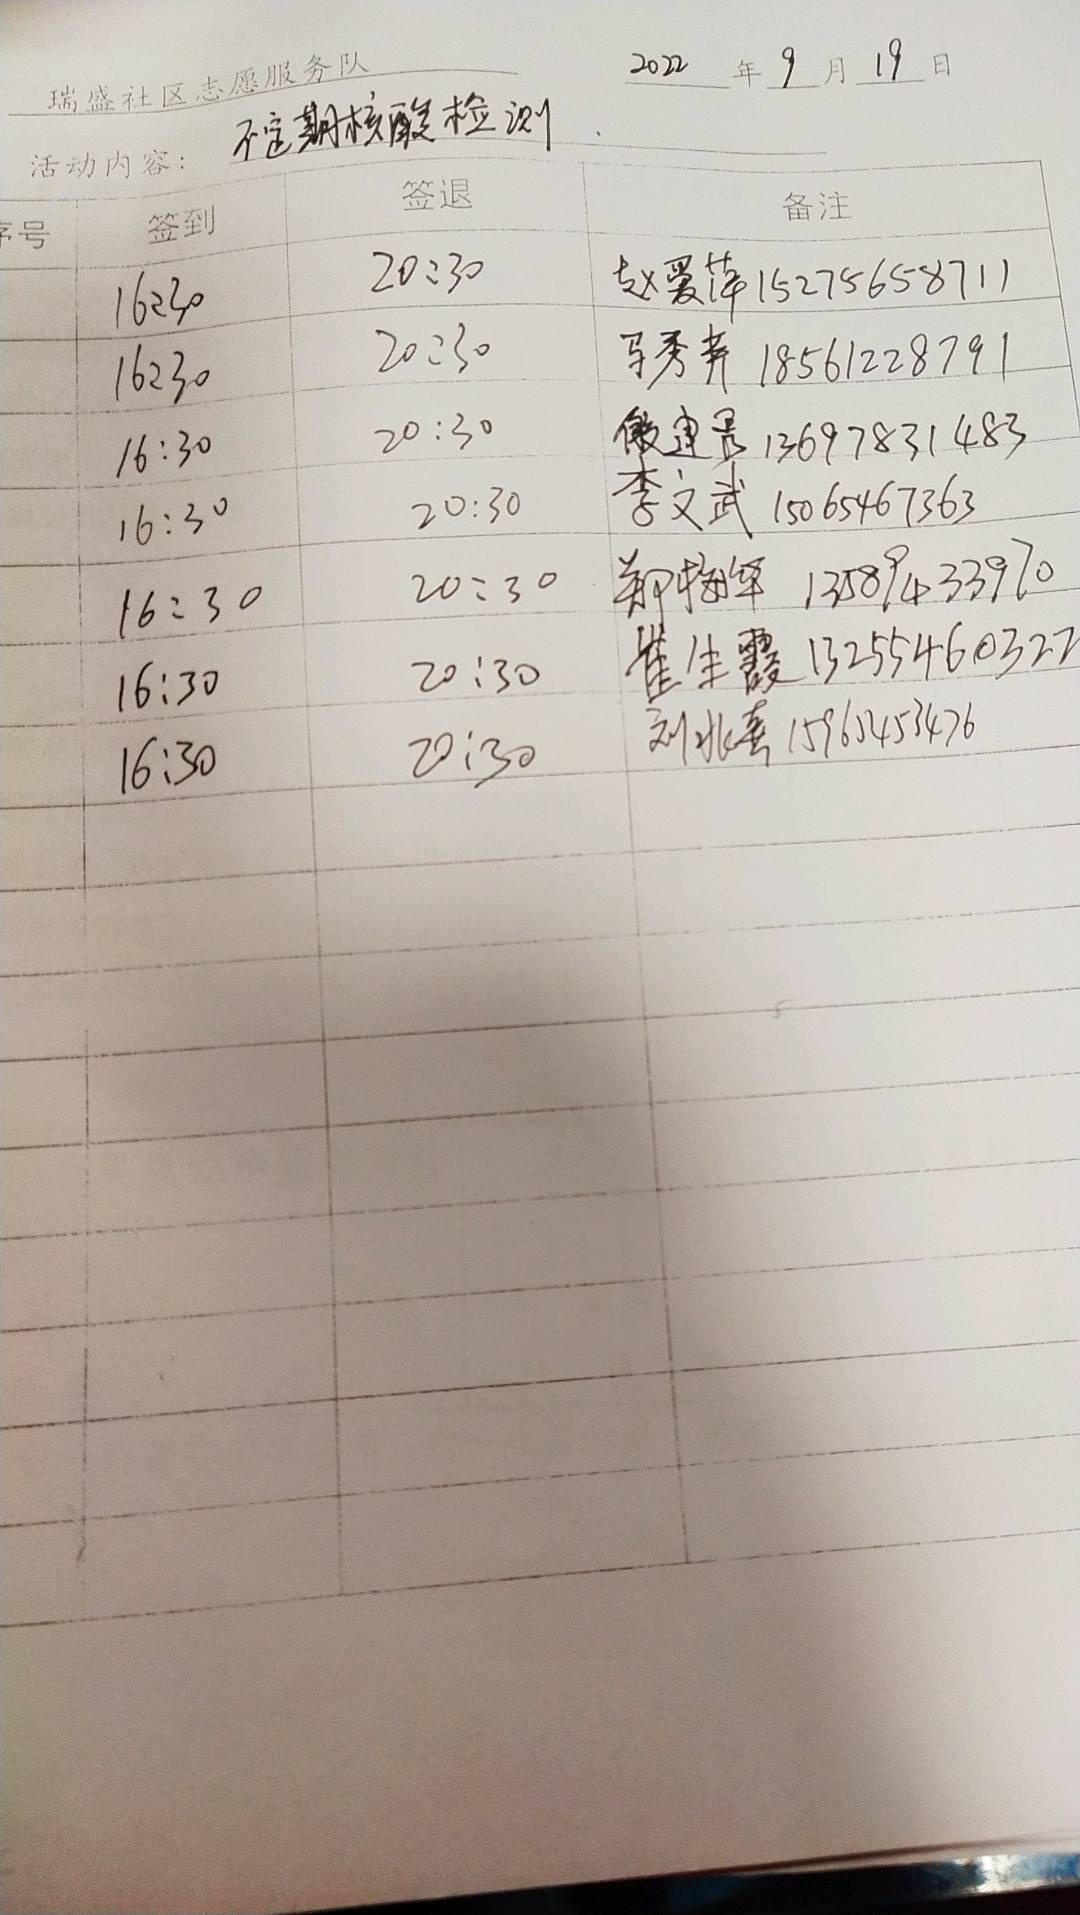 瑞盛社区志愿服务队 2022年9月19日
活动内容: 不定期核酸检测
序号 签到 签退 备注
16:30 20:30 赵爱萍 15275658711
16:30 20:30 马秀 18561228791
16:30 20:30 建 13697831483
16:30 20:30 李文武 15065467363
16:30 20:30 郑梅华 13589433970
16:30 20:30 崔生霞 13255460322
16:30 20:30 刘 15963453476